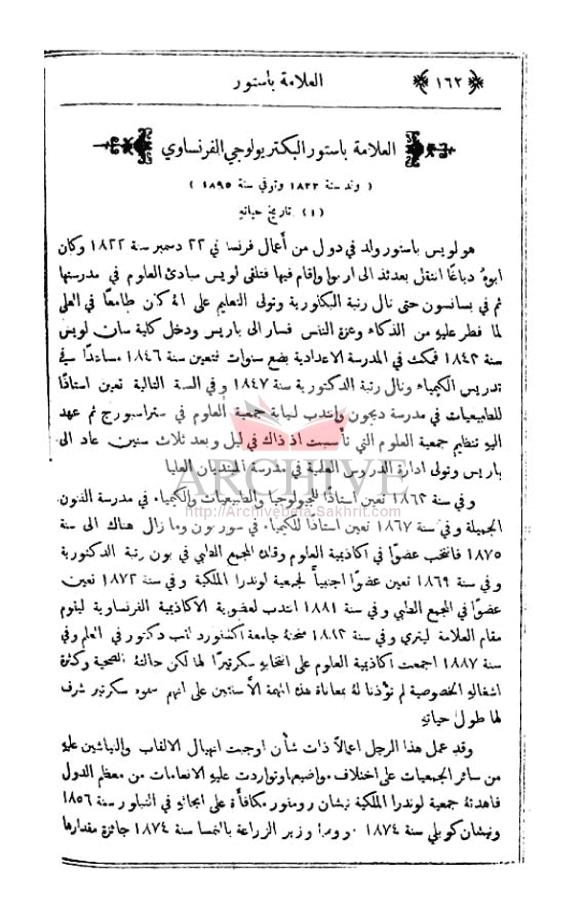 ﴿ ١٦٢ ﴾ العلامة باستور
العلامة باستور البكتريولوجي الفرنساوي
( ولد سنة ١٨٢٢ وتوفي سنة ١٨٩٥ )
(١) تاريخ حياته
هو لويس باستور ولد في دول من أعمال فرنسا في ٢٢ دسمبر سنة ١٨٢٢ وكان
ابوهُ دباغًا انتقل بعدئذ الى اربوا واقام فيها فتلقى لويس مبادئ العلوم في مدرستها
ثم في بسانسون حتى نال رتبة البكلورية وتولى التعليم على انهُ كان طامعًا في العلى
لما فطر عليهِ من الذكاء وعزة النفس فسار الى باريس ودخل كلية سان لويس
سنة ١٨٤٢ فمكث في المدرسة الاعدادية بضع سنوات فتعين سنة ١٨٤٦ مساعدًا في
تدريس الكيمياء ونال رتبة الدكتورية سنة ١٨٤٧ وفي السنة التالية تعين استاذًا
للطبيعيات في مدرسة ديجون وانتدب لنيابة جمعية العلوم في ستراسبورج ثم عهد
اليهِ تنظيم جمعية العلوم التي تأسست اذ ذاك في ليل وبعد ثلاث سنين عاد الى
باريس وتولى ادارة الدروس العلمية في مدرسة العليا
ARCHIVE
http://Archivebeta.Sakhrit.com
وفي سنة ١٨٦٣ تعين استاذًا للجيولوجيا والطبيعيات والكيمياء في مدرسة الفنون
الجميلة وفي سنة ١٨٦٧ تعين استاذًا للكيمياء في سوربون وما زال هناك الى سنة
١٨٧٥ فانتخب عضوًا في اكاديمية العلوم وقلدهُ المجمع الطبي في بون رتبة الدكتورية
وفي سنة ١٨٦٩ تعين عضوًا اجنبيًا لجمعية لوندرا الملكية وفي سنة ١٨٧٢ تعين
عضوًا في المجمع الطبي وفي سنة ١٨٨١ انتدب لعضوية الاكاديمية الفرنساوية ليقوم
مقام العلامة ليتري وفي سنة ١٨٨٢ منحتهُ جامعة اكسفورد لقب دكتور في العلم وفي
سنة ١٨٨٧ اجمعت اكاديمية العلوم على انتخابهِ سكرتيرًا لها لكن حالتهُ الصحية وكثرة
اشغالهِ الخصوصية لم تؤذنا لهُ بمعاناة هذه المهمة الا سنتين على انهم سموه سكرتير شرف
لها طول حياتهِ
وقد عمل هذا الرجل اعمالاً ذات شأن اوجبت انهيال الالقاب والنياشين عليهِ
من سائر الجمعيات على اختلاف مواضيعها وتواردت عليهِ الانعامات من معظم الدول
فاهدتهُ جمعية لوندرا الملكية نيشان رومنور مكافأة على ابحاثهِ في التبلور سنة ١٨٥٦
ونيشان كوبلي سنة ١٨٧٤ وزير الزراعة بالنمسا سنة ١٨٧٤ جائزة مقدارها